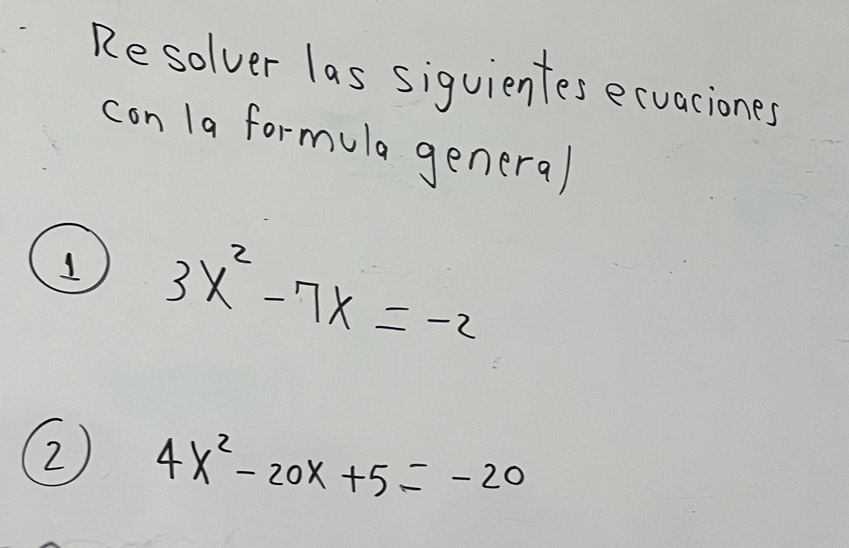 Resolver las siguientes ecuaciones
con la formula general
1 3x² - 7x = -2
2 4x² - 20x + 5 = -20